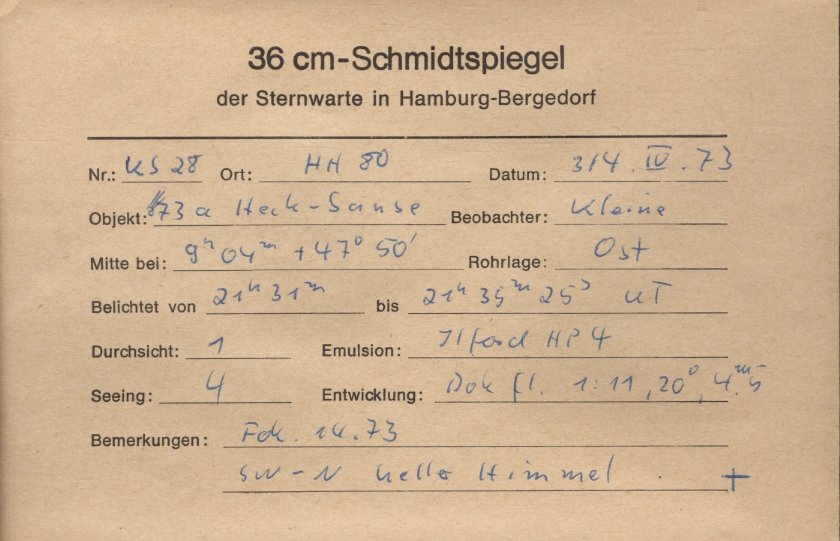 36 cm-Schmidtspiegel
der Sternwarte in Hamburg-Bergedorf
Nr.: KS 28 Ort: HH 80 Datum: 3/4. IV. 73
Objekt: 73 a Heck-Sause Beobachter: Kleine
Mitte bei: 9h 04m +47° 50' Rohrlage: Ost
Belichtet von 21h 31m bis 21h 35m 25s UT
Durchsicht: 1 Emulsion: Ilford HP4
Seeing: 4 Entwicklung: Dok fl. 1:11, 20°, 4.m5
Bemerkungen: Fok. 14.73
SW-N heller Himmel . +